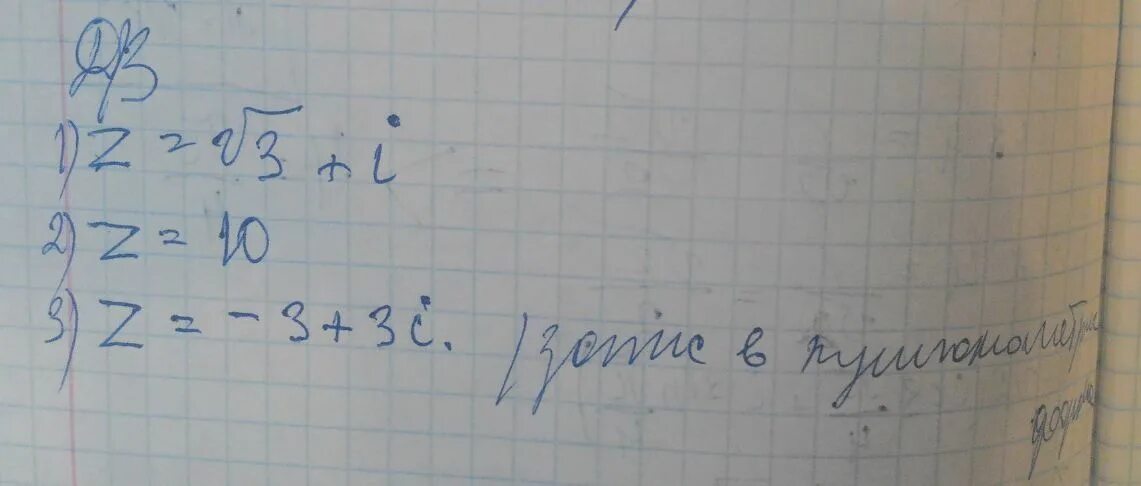 ДЗ
1) z = √3 + i
2) z = 10
3) z = -3 + 3i. /запис в тригонометр